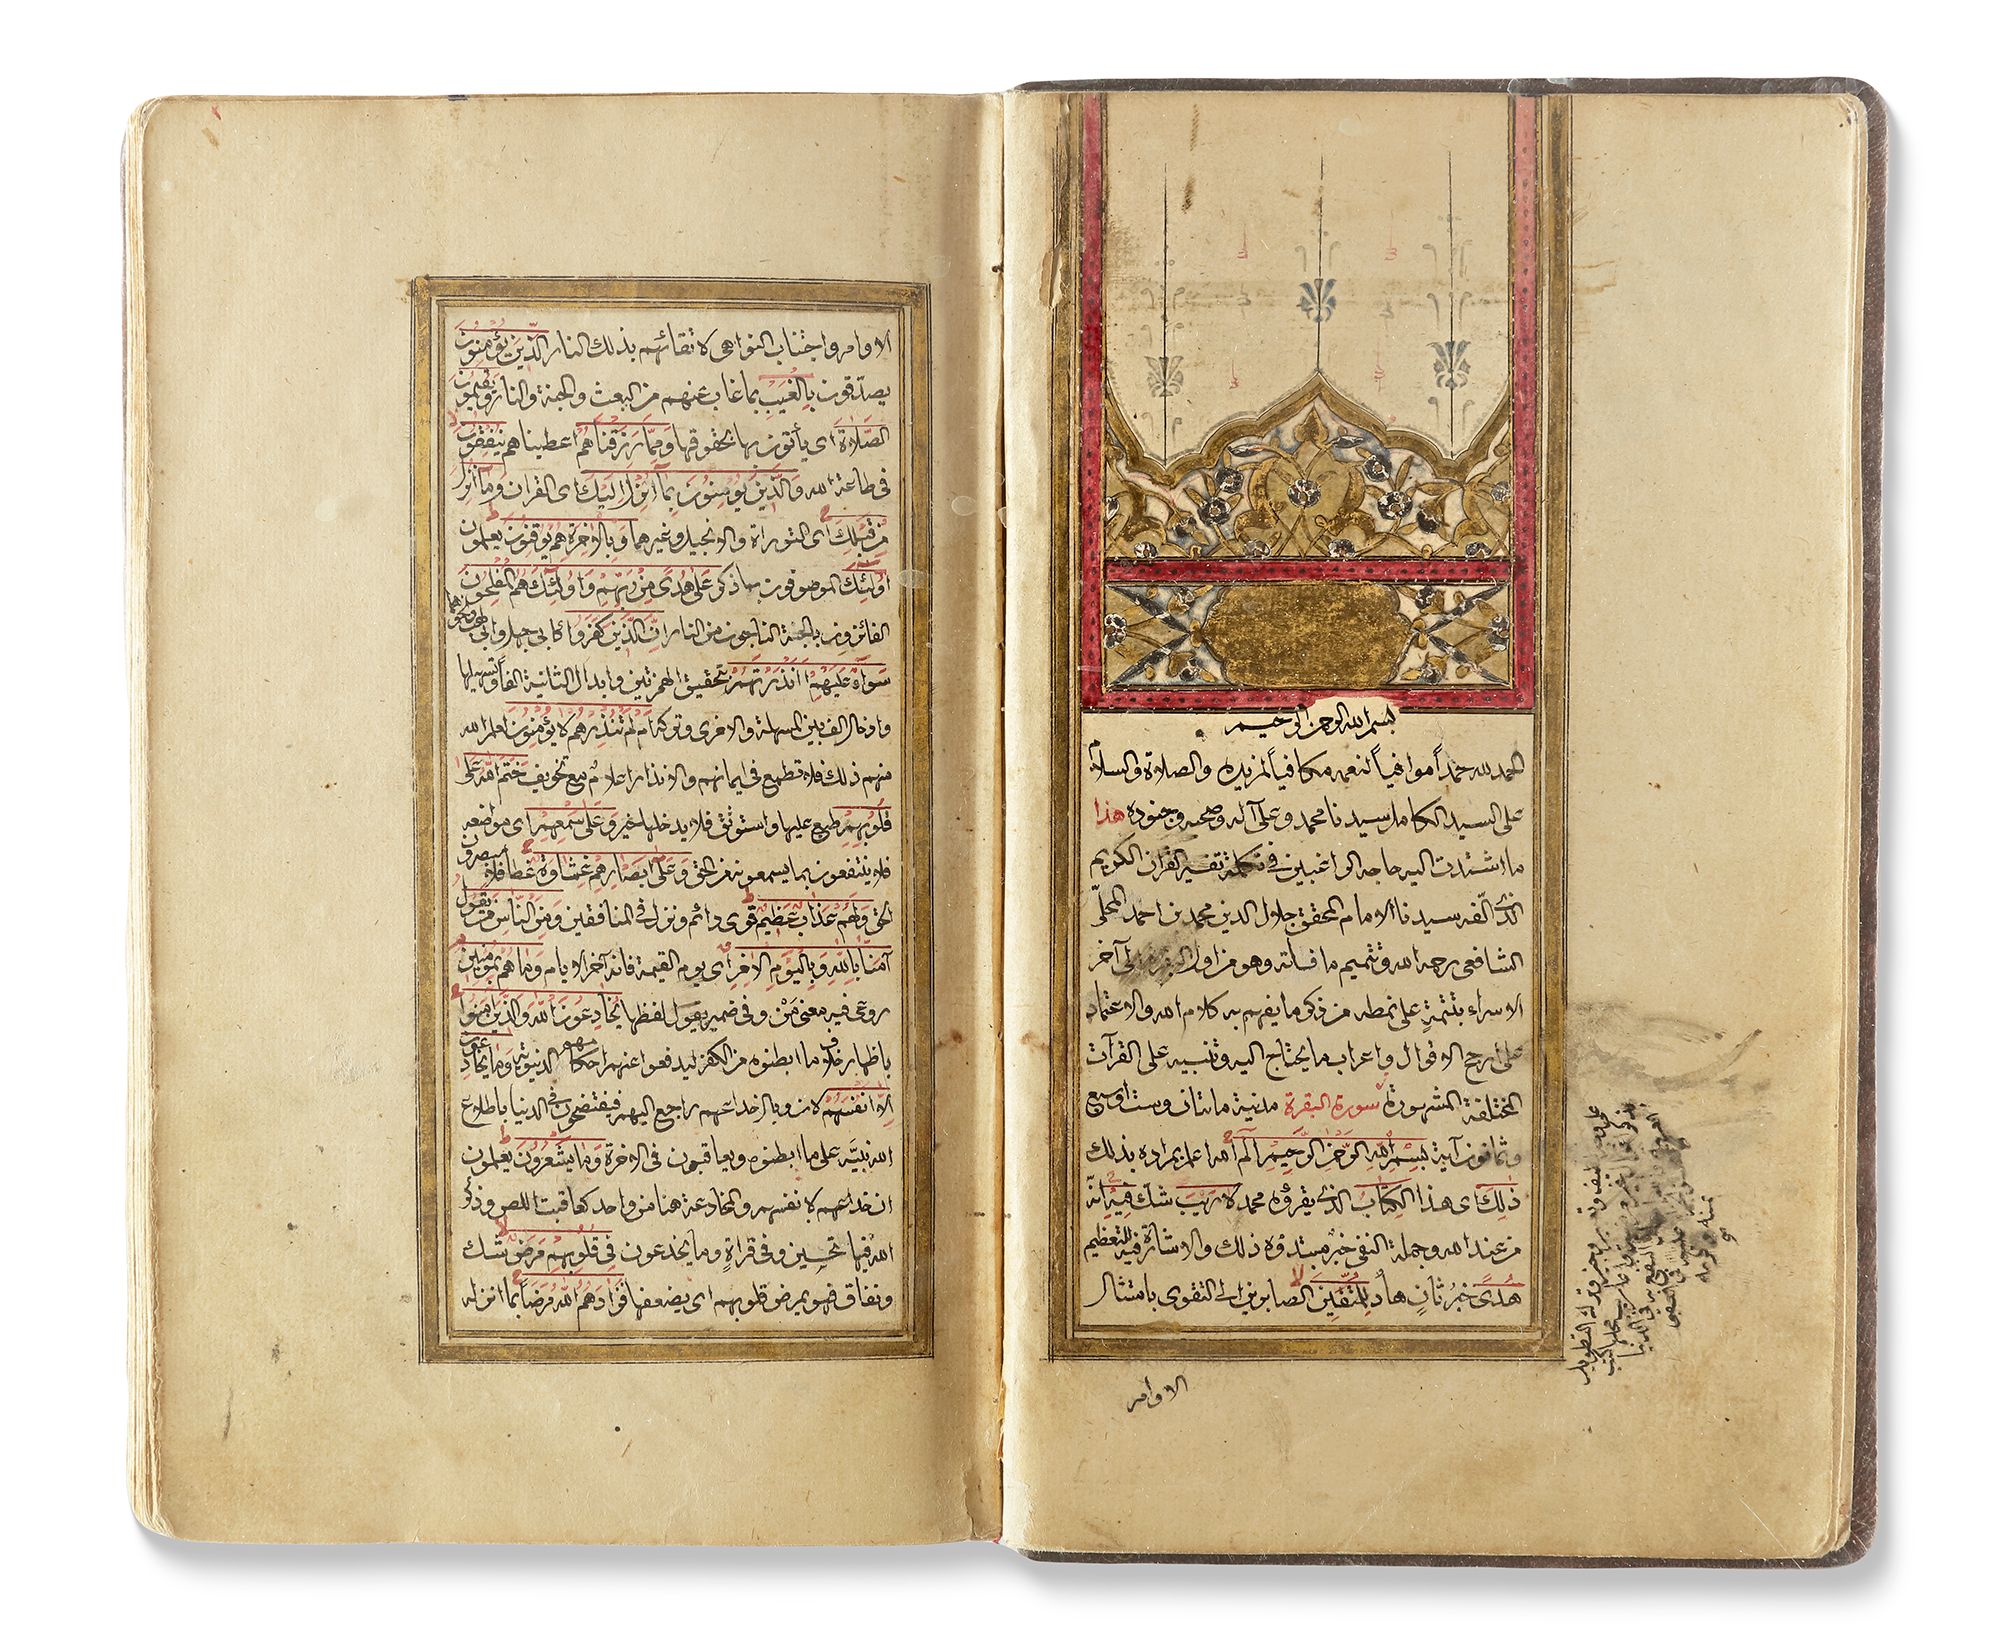 بسم الله الرحمن الرحيم
الحمد لله حمداً موافياً لنعمه مكافياً لمزيده والصلاة والسلام
على السيد الكامل سيدنا محمد وعلى آله وصحبه وجنوده هذا
ما اشتدت اليه حاجة الراغبين في تكملة تفسير القرآن الكريم
الذي الّفه سيدنا الامام المحقق جلال الدين محمد بن احمد المحلّي
الشافعي رحمه الله وتتميم ما فاته وهو من اول البقرة الى آخر
الاسراء بتتمةٍ على نمطه من ذكر ما يفهم به كلام الله والاعتماد
على ارجح الاقوال واعراب ما يحتاج اليه وتنبيه على القرآت
المختلفة المشهورة سورة البقرة مدنية مائتان وست اوسبع
وثمانون آية بِسْمِ اللهِ الرَّحْمٰنِ الرَّحِيْمِ الٓمٓ الله اعلم بمراده بذلك
ذٰلِكَ اى هذا الكِتَابُ الذي يقرؤه محمد لَا رَيْبَ شك فِيْهِ انّه
من عند الله وجملة النفى خبر مبتدؤه ذلك والاشارة فيه للتعظيم
هُدًى خبر ثانٍ هادٍ لِلْمُتَّقِيْنَ الصايرين الى التقوى بامتثال
الاوامر
الاوامر واجتناب النواهى لاتقائهم بذلك النار الَّذِيْنَ يُؤْمِنُوْنَ
يصدّقون بِالْغَيْبِ بما غاب عنهم من البعث والجنة والنار وَيُقِيْمُوْنَ
الصَّلَاةَ اى يأتون بها بحقوقها وَمِمَّا رَزَقْنَاهُمْ اعطيناهم يُنْفِقُوْنَ
فى طاعة الله وَالَّذِيْنَ يُؤْمِنُوْنَ بِمَا اُنْزِلَ اِلَيْكَ اى القران وَمَا اُنْزِلَ
مِنْ قَبْلِكَ اى التوراة والانجيل وغيرهما وَبِالْاٰخِرَةِ هُمْ يُوْقِنُوْنَ يعلمون
اُولٰئِكَ الموصوفون بما ذكر عَلٰى هُدًى مِنْ رَبِّهِمْ وَاُولٰئِكَ هُمُ الْمُفْلِحُوْنَ
الفائزون بالجنة الناجون من النار اِنَّ الَّذِيْنَ كَفَرُوْا كابى جهل وابى لهب ونحوهما
سَوَاءٌ عَلَيْهِمْ ءَاَنْذَرْتَهُمْ بتحقيق الهمزتين وابدال الثانية الفا وتسهيلها
وادخال الف بين المسهلة والاخرى وتركه اَمْ لَمْ تُنْذِرْهُمْ لَا يُؤْمِنُوْنَ لعلم الله
منهم ذلك فلا تطمع فى ايمانهم والانذار اعلام مع تخويف خَتَمَ اللهُ عَلٰى
قُلُوْبِهِمْ طبع عليها واستوثق فلا يدخلها خير وَعَلٰى سَمْعِهِمْ اى مواضعه
فلا ينتفعون بما يسمعونه من الحق وَعَلٰى اَبْصَارِهِمْ غِشَاوَةٌ غطا فلا يبصرون
الحق وَلَهُمْ عَذَابٌ عَظِيْمٌ قوى دائم ونزل فى المنافقين وَمِنَ النَّاسِ مَنْ يَقُوْلُ
اٰمَنَّا بِاللهِ وَبِالْيَوْمِ الْاٰخِرِ اى يوم القيمة فانه آخر الايام وَمَا هُمْ بِمُؤْمِنِيْنَ
روعى فيه معنى مَن وفى ضمير يقول لفظها يُخَادِعُوْنَ اللهَ وَالَّذِيْنَ اٰمَنُوْا
باظهار خلاف ما ابطنوه من الكفر ليدفعوا عنهم احكامهم الدنيوية وَمَا يُخَادِعُوْنَ
اِلَّا اَنْفُسَهُمْ لان وبال خداعهم راجع اليهم فيفتضحون فى الدنيا باطلاع
الله نبيّه على ما ابطنوه ويعاقبون فى الاخرة وَمَا يَشْعُرُوْنَ يعلمون
ان خداعهم لانفسهم والمخادعة هنا من واحد كعاقبت اللص وذكر
الله فيها تحسين وفى قراةٍ وما يخدعون فِيْ قُلُوْبِهِمْ مَرَضٌ شك
ونفاق فهو يمرض قلوبهم اى يضعفها فَزَادَهُمُ اللهُ مَرَضًا بما انزله